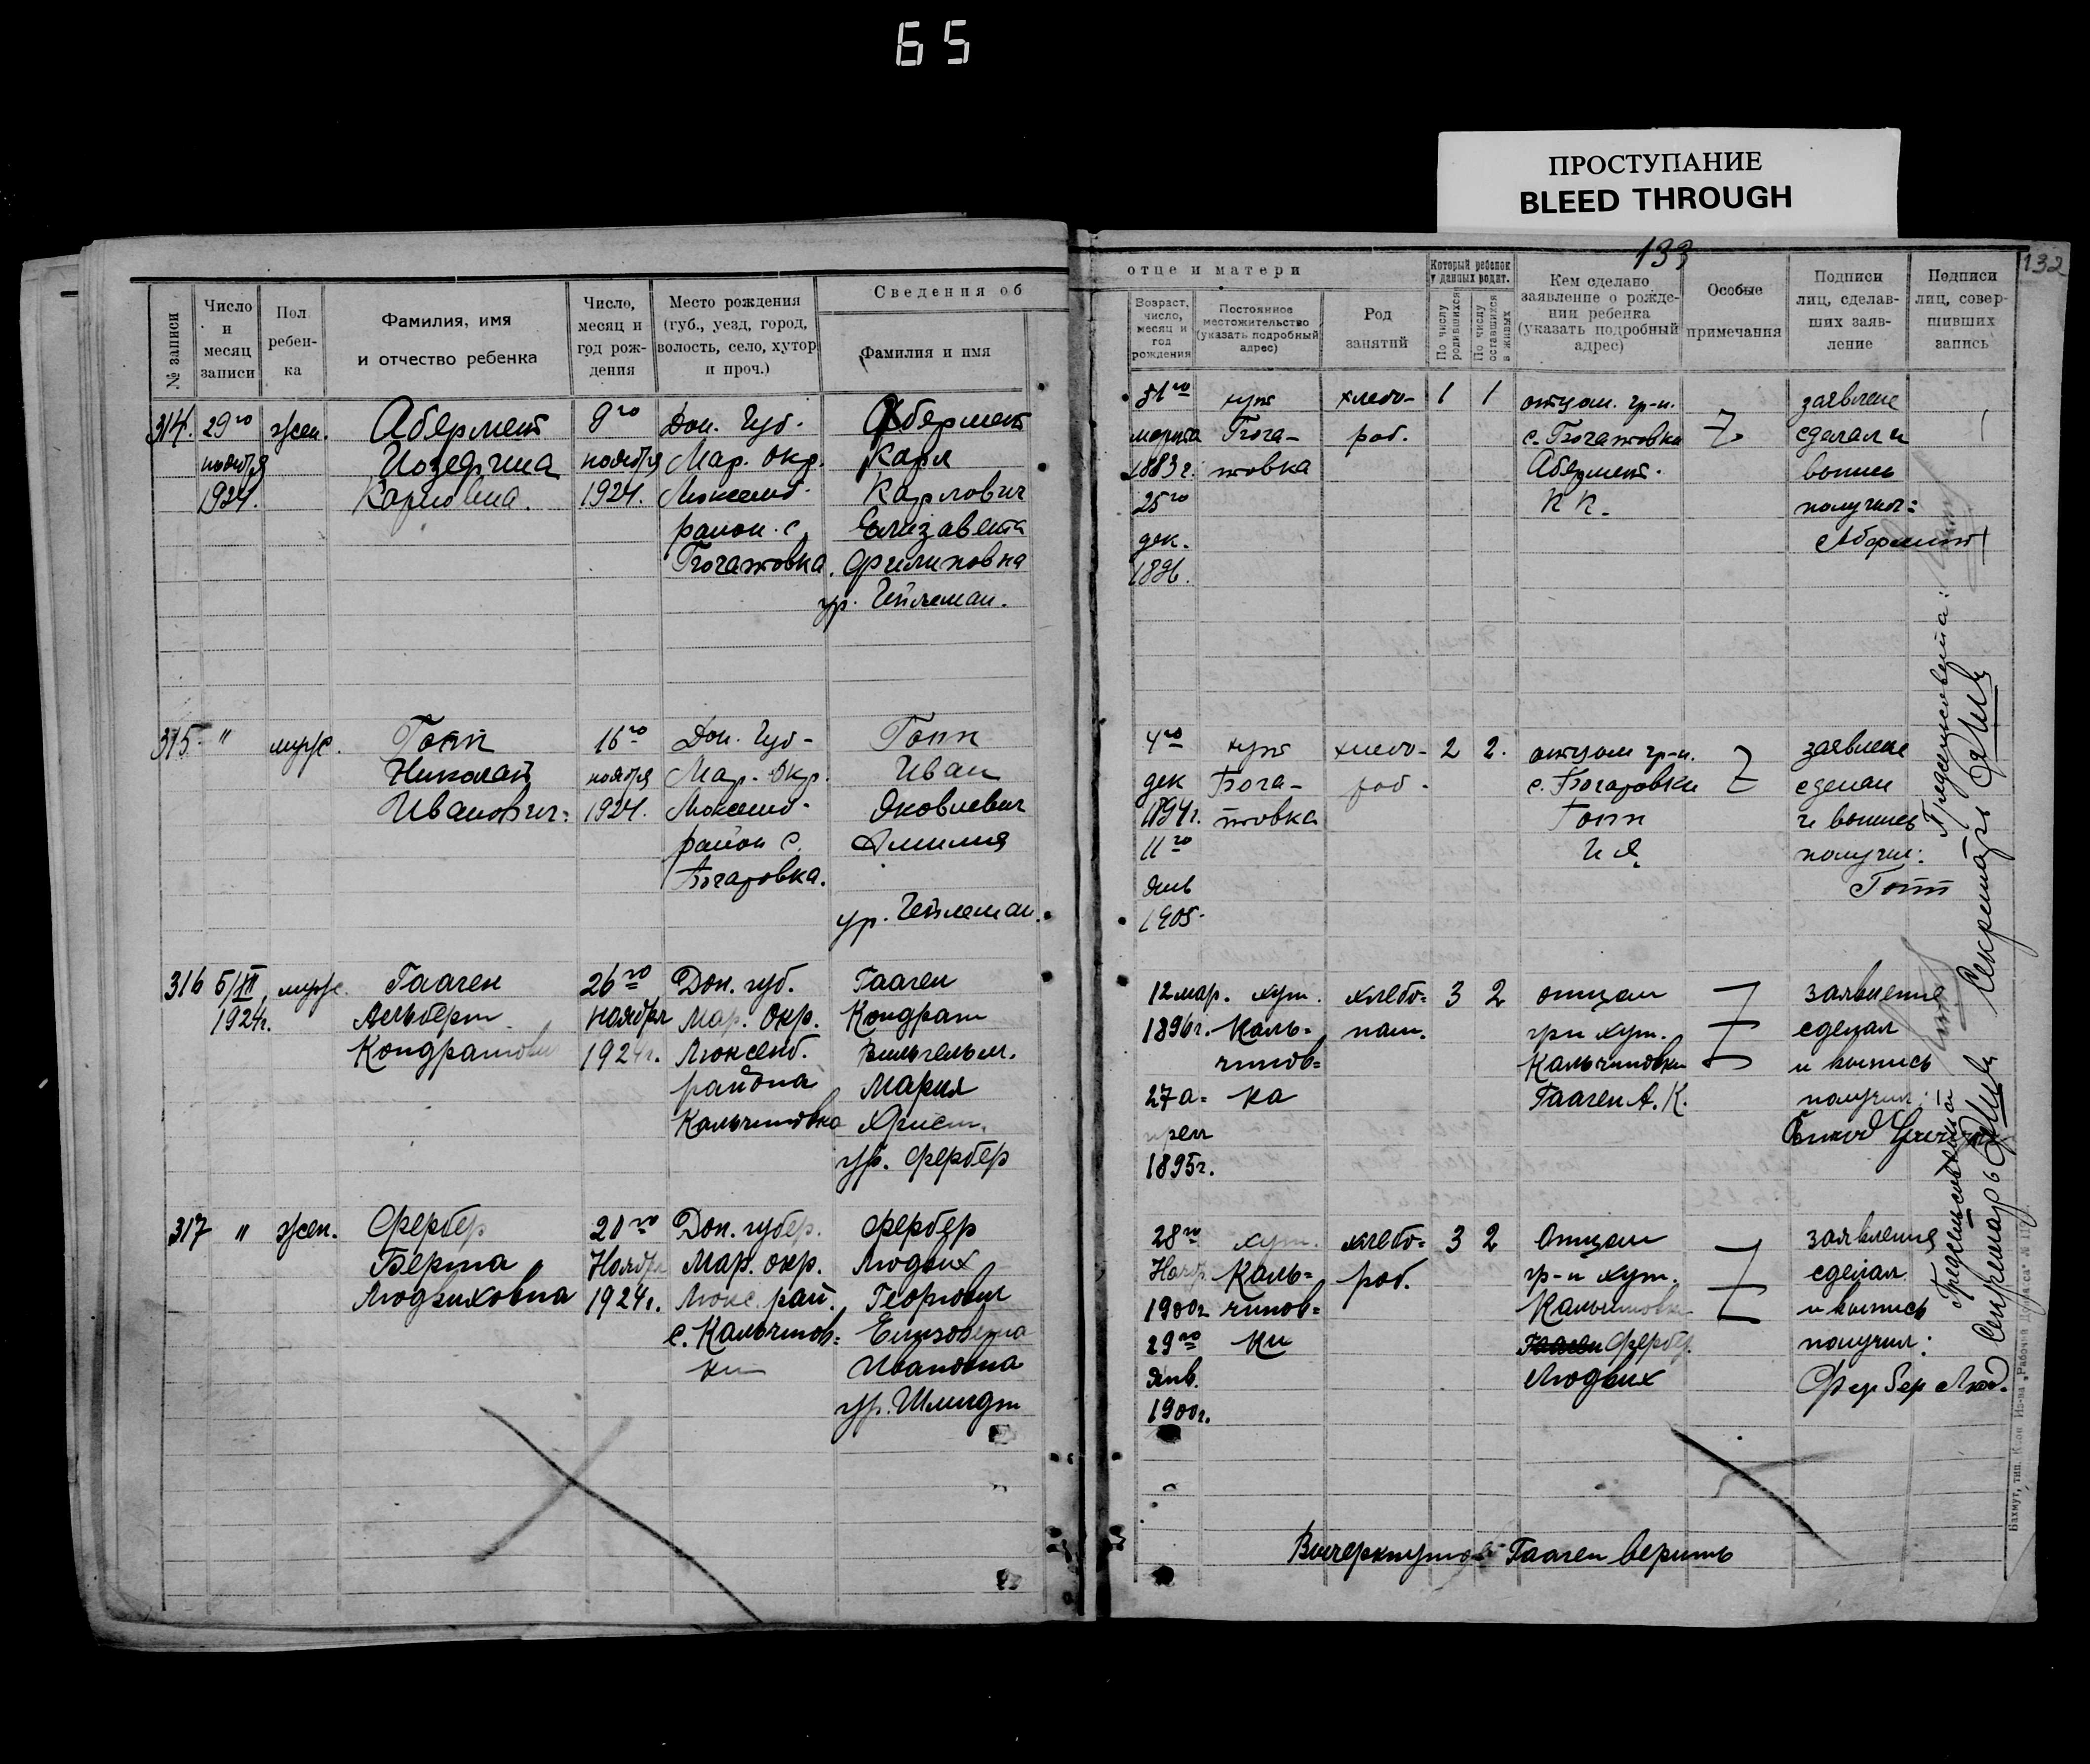 65
ПРОСТУПАНИЕ
BLEED THROUGH
133
132
Сведения об
отце и матери
№ записи
Число и месяц записи
Пол ребен-ка
Фамилия, имя и отчество ребенка
Число, месяц и год рож-дения
Место рождения (губ., уезд, город, волость, село, хутор и проч.)
Фамилия и имя
Возраст, число, месяц и год рождения
Постоянное местожительство (указать подробный адрес)
Род занятий
Который ребенок у данных родит.
По числу родившихся
По числу оставшихся в живых
Кем сделано заявление о рожде-нии ребенка (указать подробный адрес)
Особые примечания
Подписи лиц, сделав-ших заяв-ление
Подписи лиц, совер-шивших запись
314. 29го жен. Абермет 9го Дон. Губ. Абермет
ноября Иозефина ноября Мар. Окр. Карл
1924. Карловна. 1924. Люксемб. Карлович
район. с. Елизавета
Богатовка. Филиповна
ур. Гейлеман.
31го хут хлебо- 1 1 отцом. гр-н. заявление
марта Бога- роб. с. Богатовка сделал и
1883г. товка Абермет. выпись
25го К К. получил:
дек.
1896.
315. " муж. Гопп 16го Дон. Губ- Гопп
Николай ноября Мар. Окр. Иван
Иванович: 1924. Люксемб- Яковлевич
район с. Эмилия
Богатовка.
ур. Гейлеман.
4го хут хлебо- 2 2. отцом гр-н. заявление
дек Бога- роб. с. Богатовки сделал
1894г. товка Гопп и выпись
11го И Я. получил:
янв Гопп
1905.
316 5/XII муж. Гааген 26го Дон. губ. Гааген
1924г. Альберт ноября Мар. Окр. Кондрат
Кондратович 1924г. Люксемб. Вильгельм.
района Мария
Кальчиновка Христ.
ур. Фербер
12 мар. хут. хлебо= 3 2 отцом заявление
1896г. Каль= паш. грн хут. сделал
чинов= Кальчиновки и выпись
27 а= ка Гааген А. К. получил:
прел
1895г.
317 " жен. Фербер 20го Дон. губер. Фербер
Берта Ноября Мар. окр. Людвих
Людвиховна 1924г. Люкс. рай. Георгович
с. Кальчинов= Елизовета
ки Ивановна
ур. Шмидт
28го хут. хлебо= 3 2 Отцом заявление
Нояб. Каль= роб. гр-н хут. сделал
1900г чинов= Кальчиновки и выпись
29го ки Гааген Фербер. получил:
Янв. Людвих Фербер Люд.
1900г.
Председатель
Секретарь
Председатель
Секретарь
Вычеркнутое Гааген верить